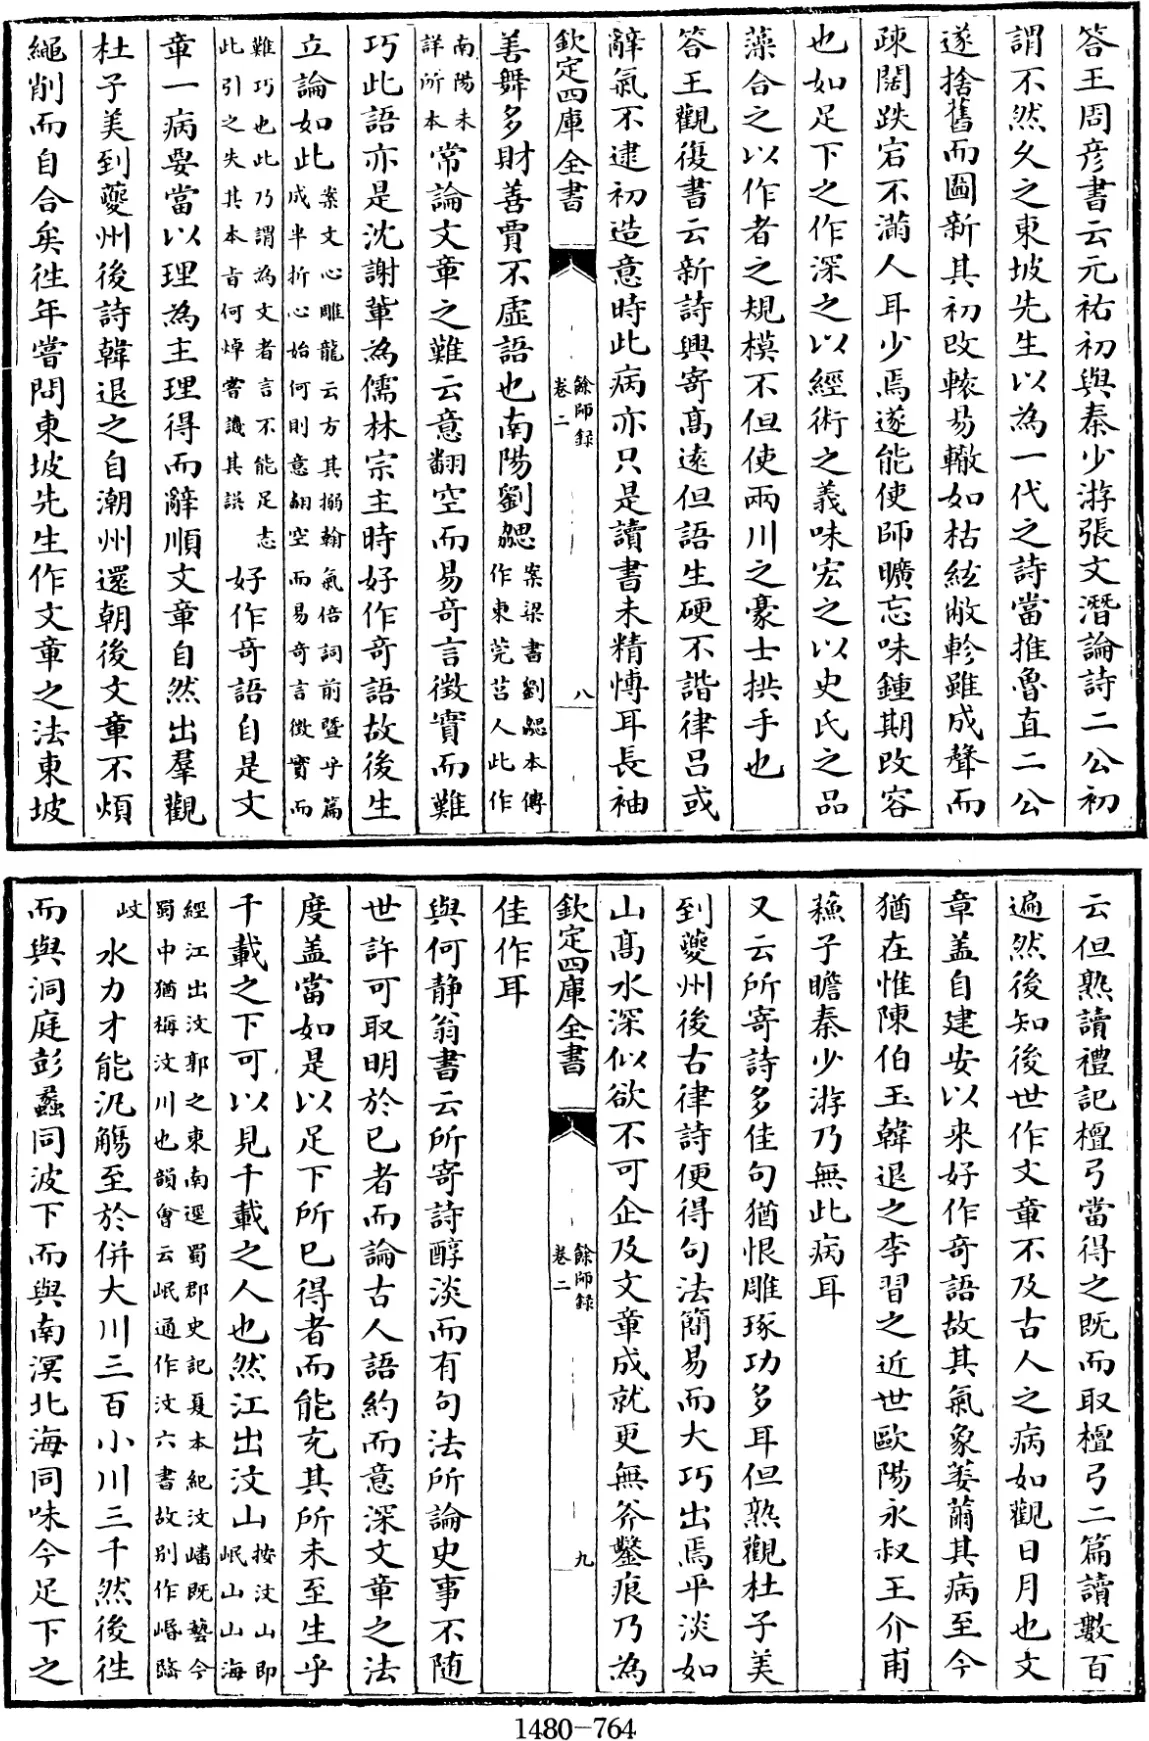 答王周彦書云元祐初與秦少游張文潛論詩二公初
謂不然久之東坡先生以為一代之詩當推魯直二公
遂捨舊而圖新其初改轅易轍如枯絃敝軫雖成聲而
疎闊跌宕不滿人耳少焉遂能使師曠忘味鍾期改容
也如足下之作深之以經術之義味宏之以史氏之品
藻合之以作者之規模不但使兩川之豪士拱手也
答王觀復書云新詩興寄髙逺但語生硬不諧律吕或
辭氣不逮初造意時此病亦只是讀書未精愽耳長袖
欽定四庫全書
餘師録
卷二
八
善舞多財善賈不虚語也南陽劉勰案梁書劉勰本傳作東莞莒人此作
南陽未詳所本常論文章之難云意翻空而易竒言徴實而難
巧此語亦是沈謝輩為儒林宗主時好作竒語故後生
立論如此案文心雕龍云方其搦翰氣倍詞前暨乎篇成半折心始何則意翻空而易竒言徴實而
難巧也此乃謂為文者言不能足志此引之失其本㫖何焯嘗譏其誤好作竒語自是文
章一病要當以理為主理得而辭順文章自然出羣觀
杜子美到夔州後詩韓退之自潮州還朝後文章不煩
繩削而自合矣往年嘗問東坡先生作文章之法東坡
云但熟讀禮記檀弓當得之既而取檀弓二篇讀數百
遍然後知後世作文章不及古人之病如觀日月也文
章葢自建安以來好作竒語故其氣象萎薾其病至今
猶在惟陳伯玉韓退之李習之近世歐陽永叔王介甫
蘓子瞻秦少游乃無此病耳
又云所寄詩多佳句猶恨雕琢功多耳但熟觀杜子美
到夔州後古律詩便得句法簡易而大巧出焉平淡如
山髙水深似欲不可企及文章成就更無斧鑿痕乃為
欽定四庫全書
餘師録
卷二
九
佳作耳
與何静翁書云所寄詩醇淡而有句法所論史事不随
世許可取明於已者而論古人語約而意深文章之法
度葢當如是以足下所已得者而能充其所未至生乎
千載之下可以見千載之人也然江出汶山按汶山即岷山山海
經江出汶郭之東南逕蜀郡史記夏本紀汶嶓既藝今蜀中猶稱汶川也韻會云岷通作汶六書故别作㟭䐉
㟴水力才能汎觴至於併大川三百小川三千然後徃
而與洞庭彭蠡同波下而與南溟北海同味今足下之
1480-764